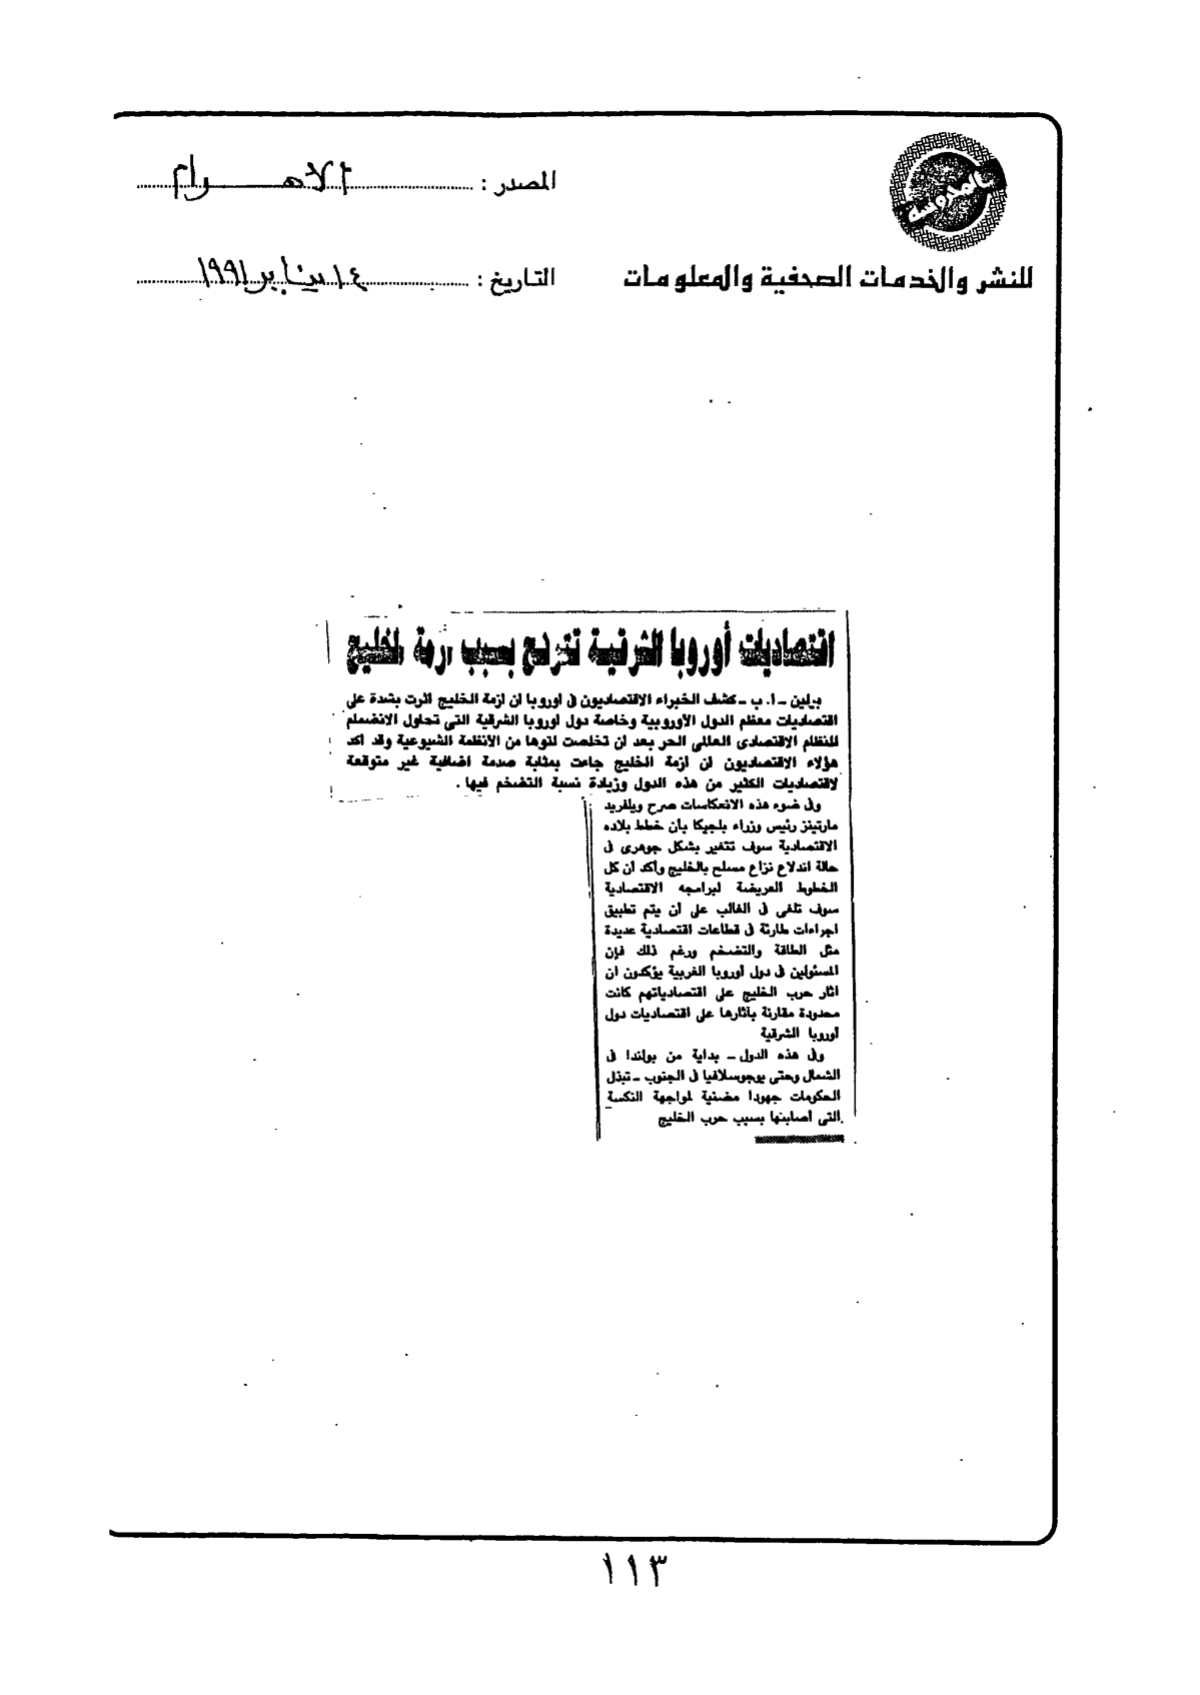 المصدر : الاهرام
للنشر والخدمات الصحفية والمعلومات
التاريخ : ١٤ يناير ١٩٩١
اقتصاديات أوروبا الشرقية تتردع بسبب أزمة الخليج
برلين - ا. ب - كشف الخبراء الاقتصاديون فى اوروبا ان ازمة الخليج اثرت بشدة على
اقتصاديات معظم الدول الأوروبية وخاصة دول اوروبا الشرقية التى تحاول الانضمام
للنظام الاقتصادى العالمى الحر بعد ان تخلصت لتوها من الأنظمة الشيوعية وقد اكد
هؤلاء الاقتصاديون ان ازمة الخليج جاءت بمثابة صدمة اضافية غير متوقعة
لاقتصاديات الكثير من هذه الدول وزيادة نسبة التضخم فيها .
وفى ضوء هذه الانعكاسات صرح ويلفريد
مارتينز رئيس وزراء بلجيكا بأن خطط بلاده
الاقتصادية سوف تتغير بشكل جوهرى فى
حالة اندلاع نزاع مسلح بالخليج وأكد أن كل
الخطوط العريضة لبرامجه الاقتصادية
سوف تلغى فى الغالب على أن يتم تطبيق
اجراءات طارئة فى قطاعات اقتصادية عديدة
مثل الطاقة والتضخم ورغم ذلك فإن
المسئولين فى دول أوروبا الغربية يؤكدون ان
اثار حرب الخليج على اقتصادياتهم كانت
محدودة مقارنة بآثارها على اقتصاديات دول
أوروبا الشرقية
وفى هذه الدول - بداية من بولندا فى
الشمال وحتى يوجوسلافيا فى الجنوب - تبذل
الحكومات جهودا مضنية لمواجهة النكسة
التى أصابتها بسبب حرب الخليج
١١٣